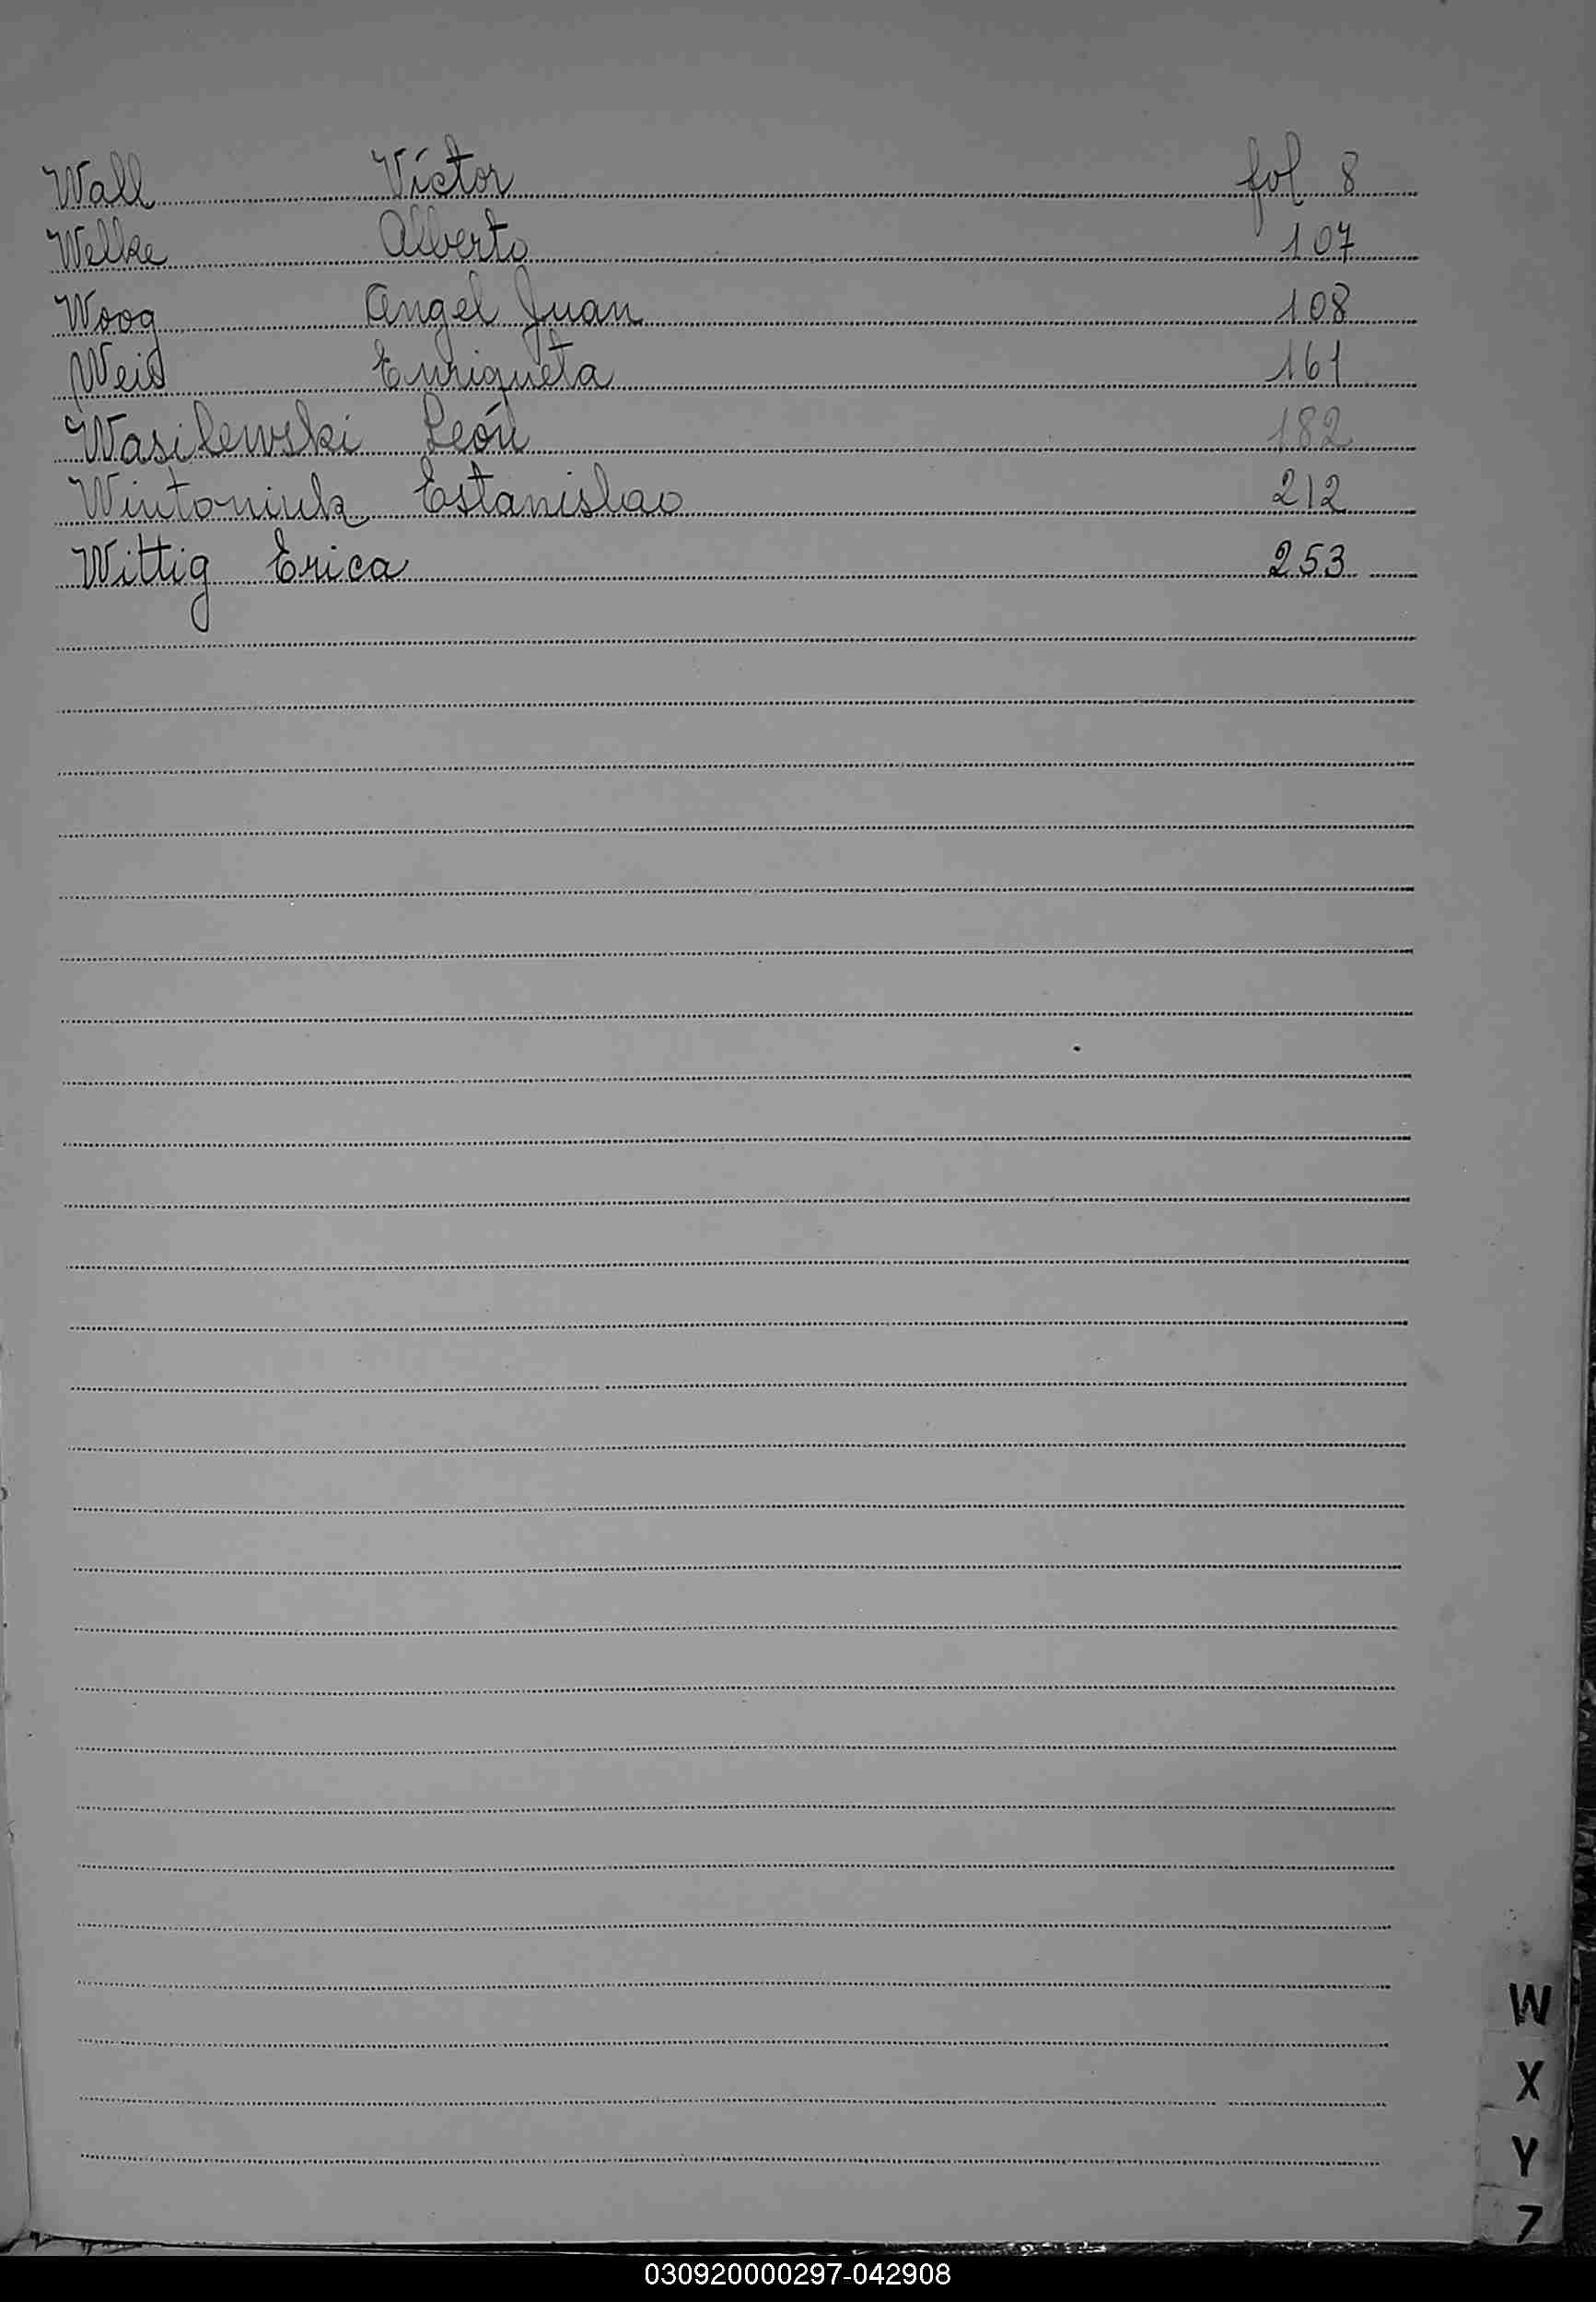 Wall Víctor fol 8
Welke Alberto 107
Woog Angel Juan 108
Weis Enriqueta 161
Wasilewski León 182
Wintoniuk Estanislao 212
Wittig Erica 253
W
X
Y
Z
030920000297-042908